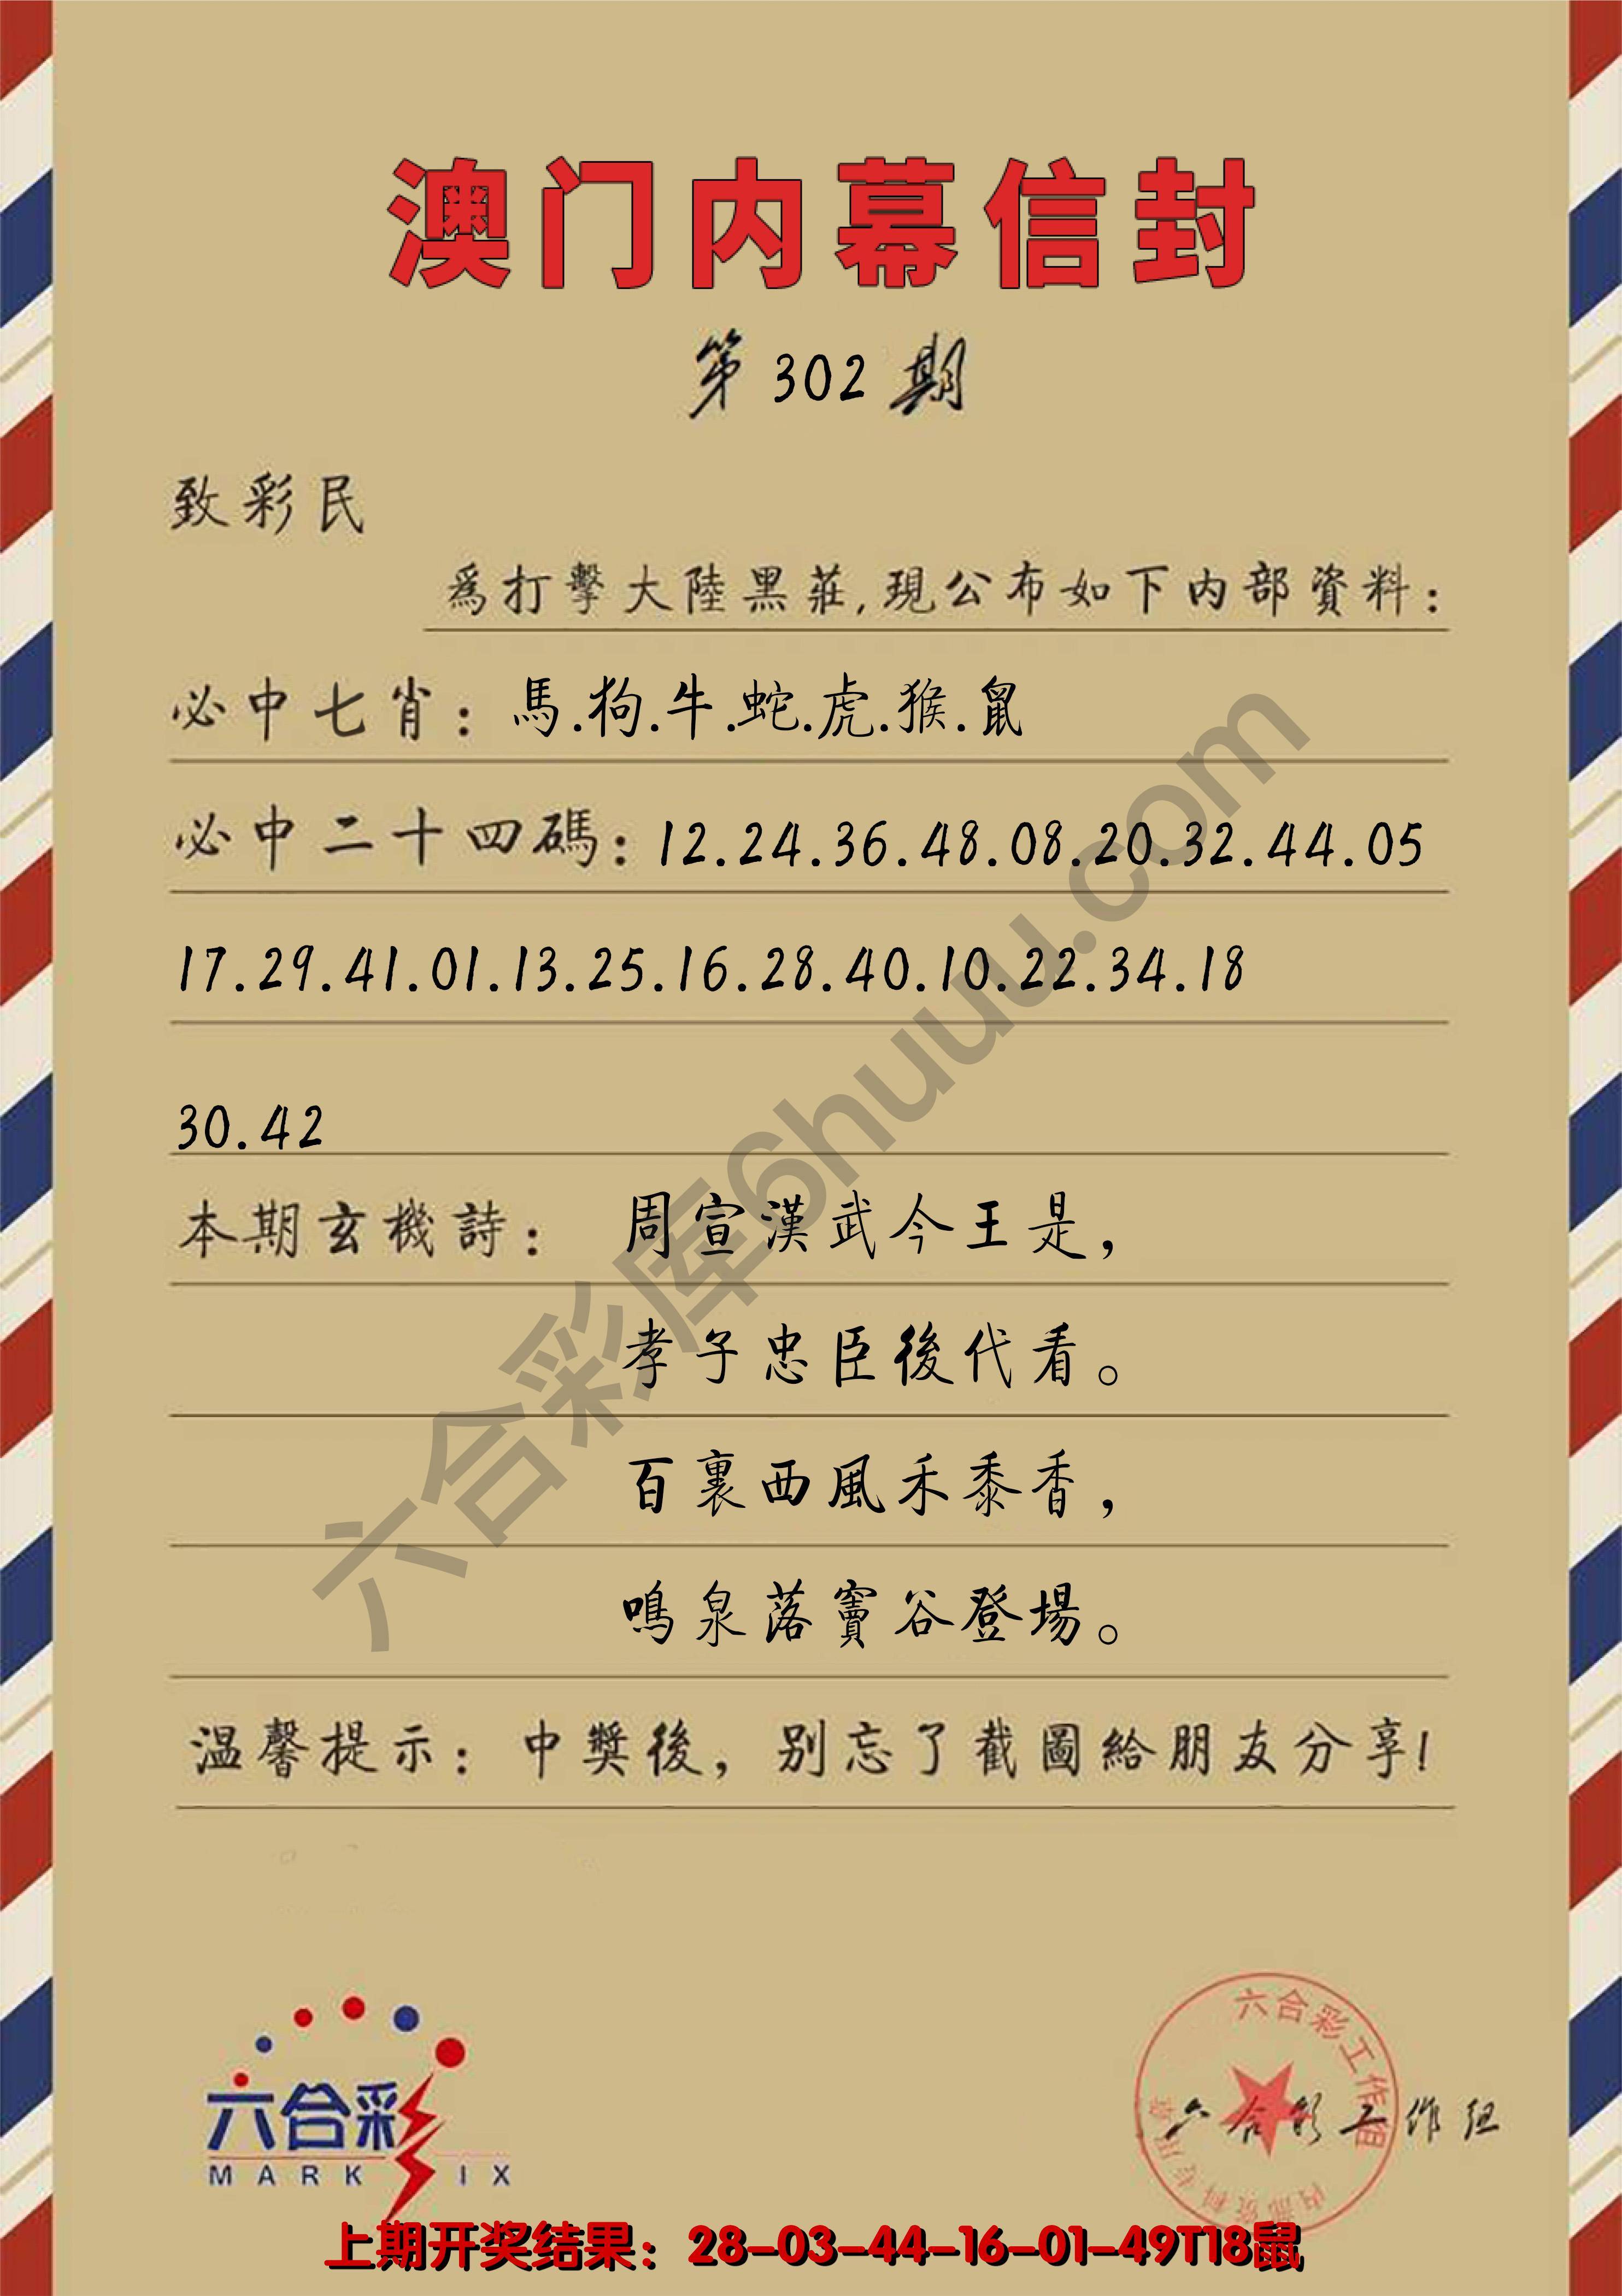 澳门内幕信封
第302期
致彩民
為打擊大陸黑莊,現公布如下内部資料:
必中七肖:馬.狗.牛.蛇.虎.猴.鼠
必中二十四碼:12.24.36.48.08.20.32.44.05
17.29.41.01.13.25.16.28.40.10.22.34.18
30.42
本期玄機詩: 周宣漢武今王是,
孝子忠臣後代看。
百裏西風禾黍香,
鳴泉落竇谷登場。
温馨提示:中獎後,别忘了截圖給朋友分享!
六合彩库6huuu.com
六合彩
MARK IX
六合彩工作组
六合彩工作组
内部资料专用章
上期开奖结果:28-03-44-16-01-49T18鼠